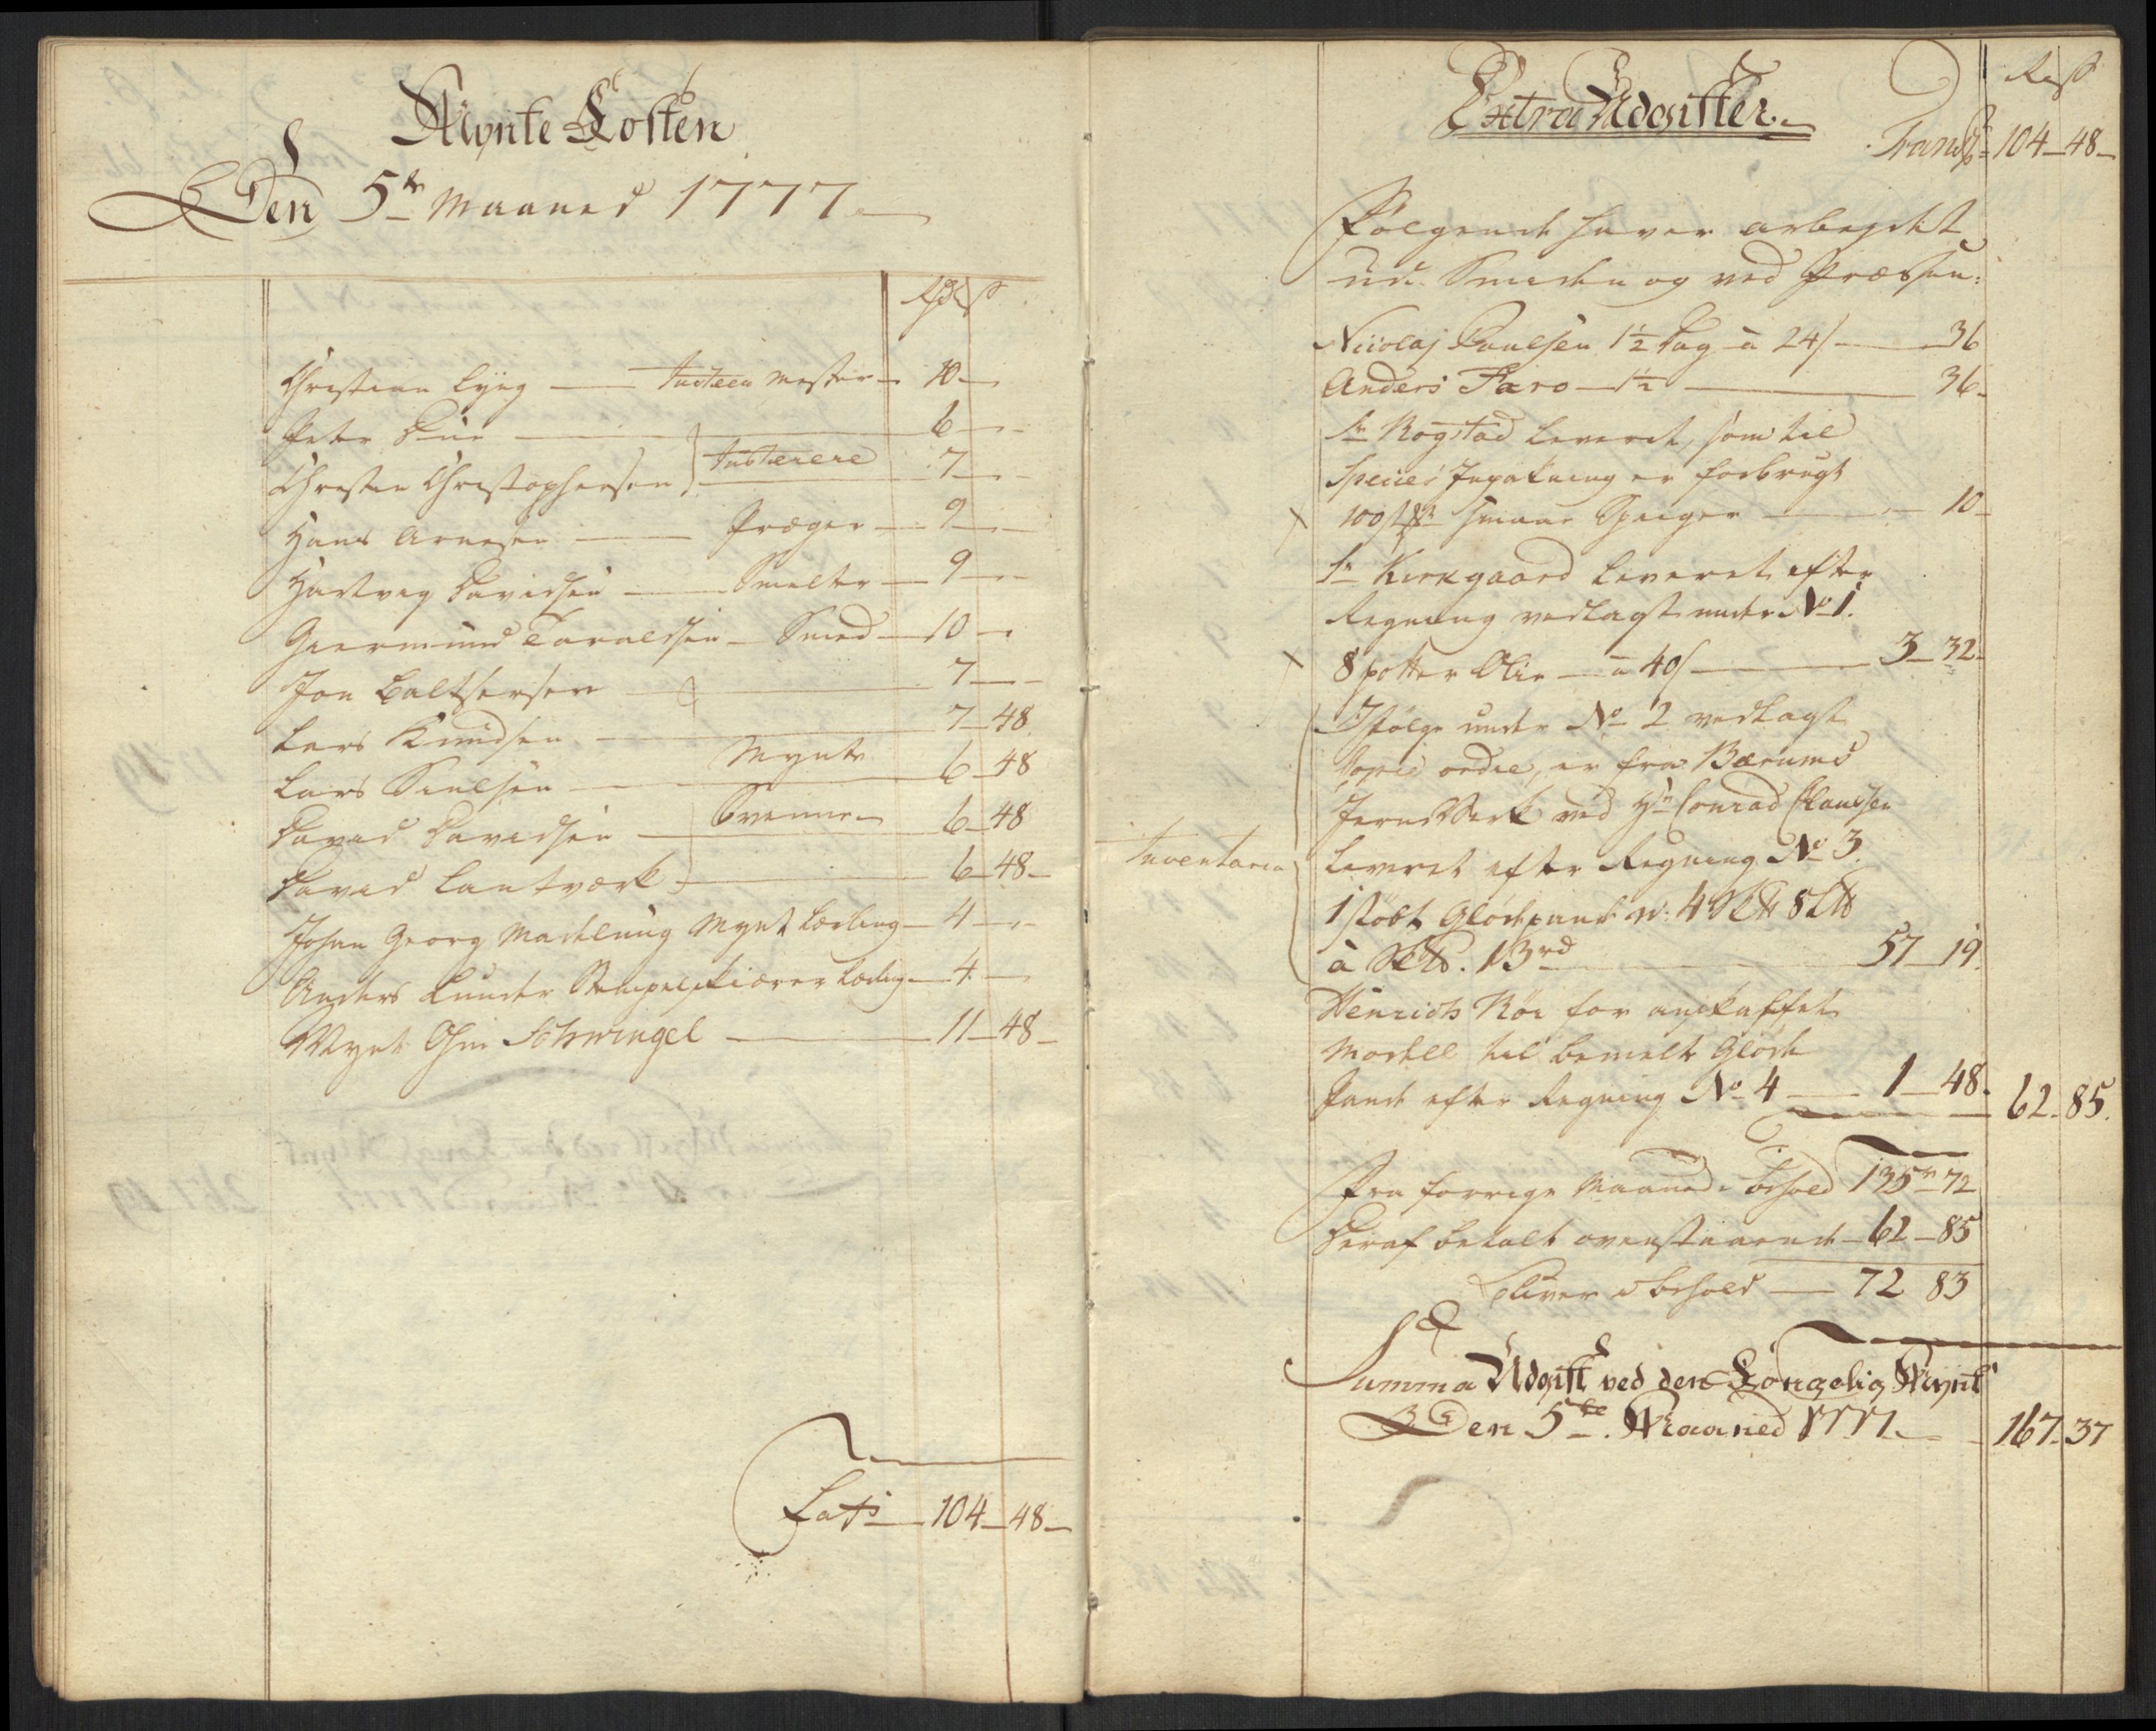 Mynte Kosten
Den 5te Maaned 1777
Rdr ß
Christian Lyng — Justeer Mester — 10 —
Peter Due — 6 —
Christen Christophersen Justerere 7 —
Hans Arnesen — Præger — 9 —
Hartvig Davidsen — Smelter — 9 —
Giermund Taraldsen — Smed — 10 —
Jon Baltzersen — 7 —
Lars Knudsen — 7 — 48
Lars Nielsen — Mynt 6 — 48
David Davidsen — Svenne 6 — 48
David Lautværk — 6 — 48 —
Johan Georg Madelung Mynt Lærling — 4 —
Anders Lunde Stempelskiærer Lærling — 4 —
Mynt Schwingel — 11 — 48 —
Lats — 104 — 48 —
Extra Udgifter.
Rd ß
Transp: 104 — 48 —
Følgende haver arbeydet
udi Smeden og ved Præssen:
Nicolaj Poulsen 1½ Dag à 24ß — 36
Anders Faro — 1½ — 36 —
Sr Rogstad leveret, som til
Specier Inpakning er forbrugt
x 100 smaae Spiger — 10 —
Sr Kirkgaard leveret efter
Regning vedlagt under No 1.
x 8 potter Olie — à 40ß — 3 — 32 —
Ifølge under No 2 vedlagt
Copie ordre, er fra Bærums
JernWerk ved Hr Conrad Clausen
Inventaria leveret efter Regning No 3.
1 støbt Glødepande w: 4 8
à 13rd — 57 — 19.
Henrich Röe for anskaffet
Modell til bemelte Gløde
Pande efter Regning No 4 — 1 — 48. 62 — 85.
Fra forrige Maaned i behold 135 — 72
Deraf betalt ovenstaaende — 62 — 85
bliver i behold — 72 83
Summa Udgift ved den Kongelig Mynt
Den 5te Maaned 1777 — 167 — 37